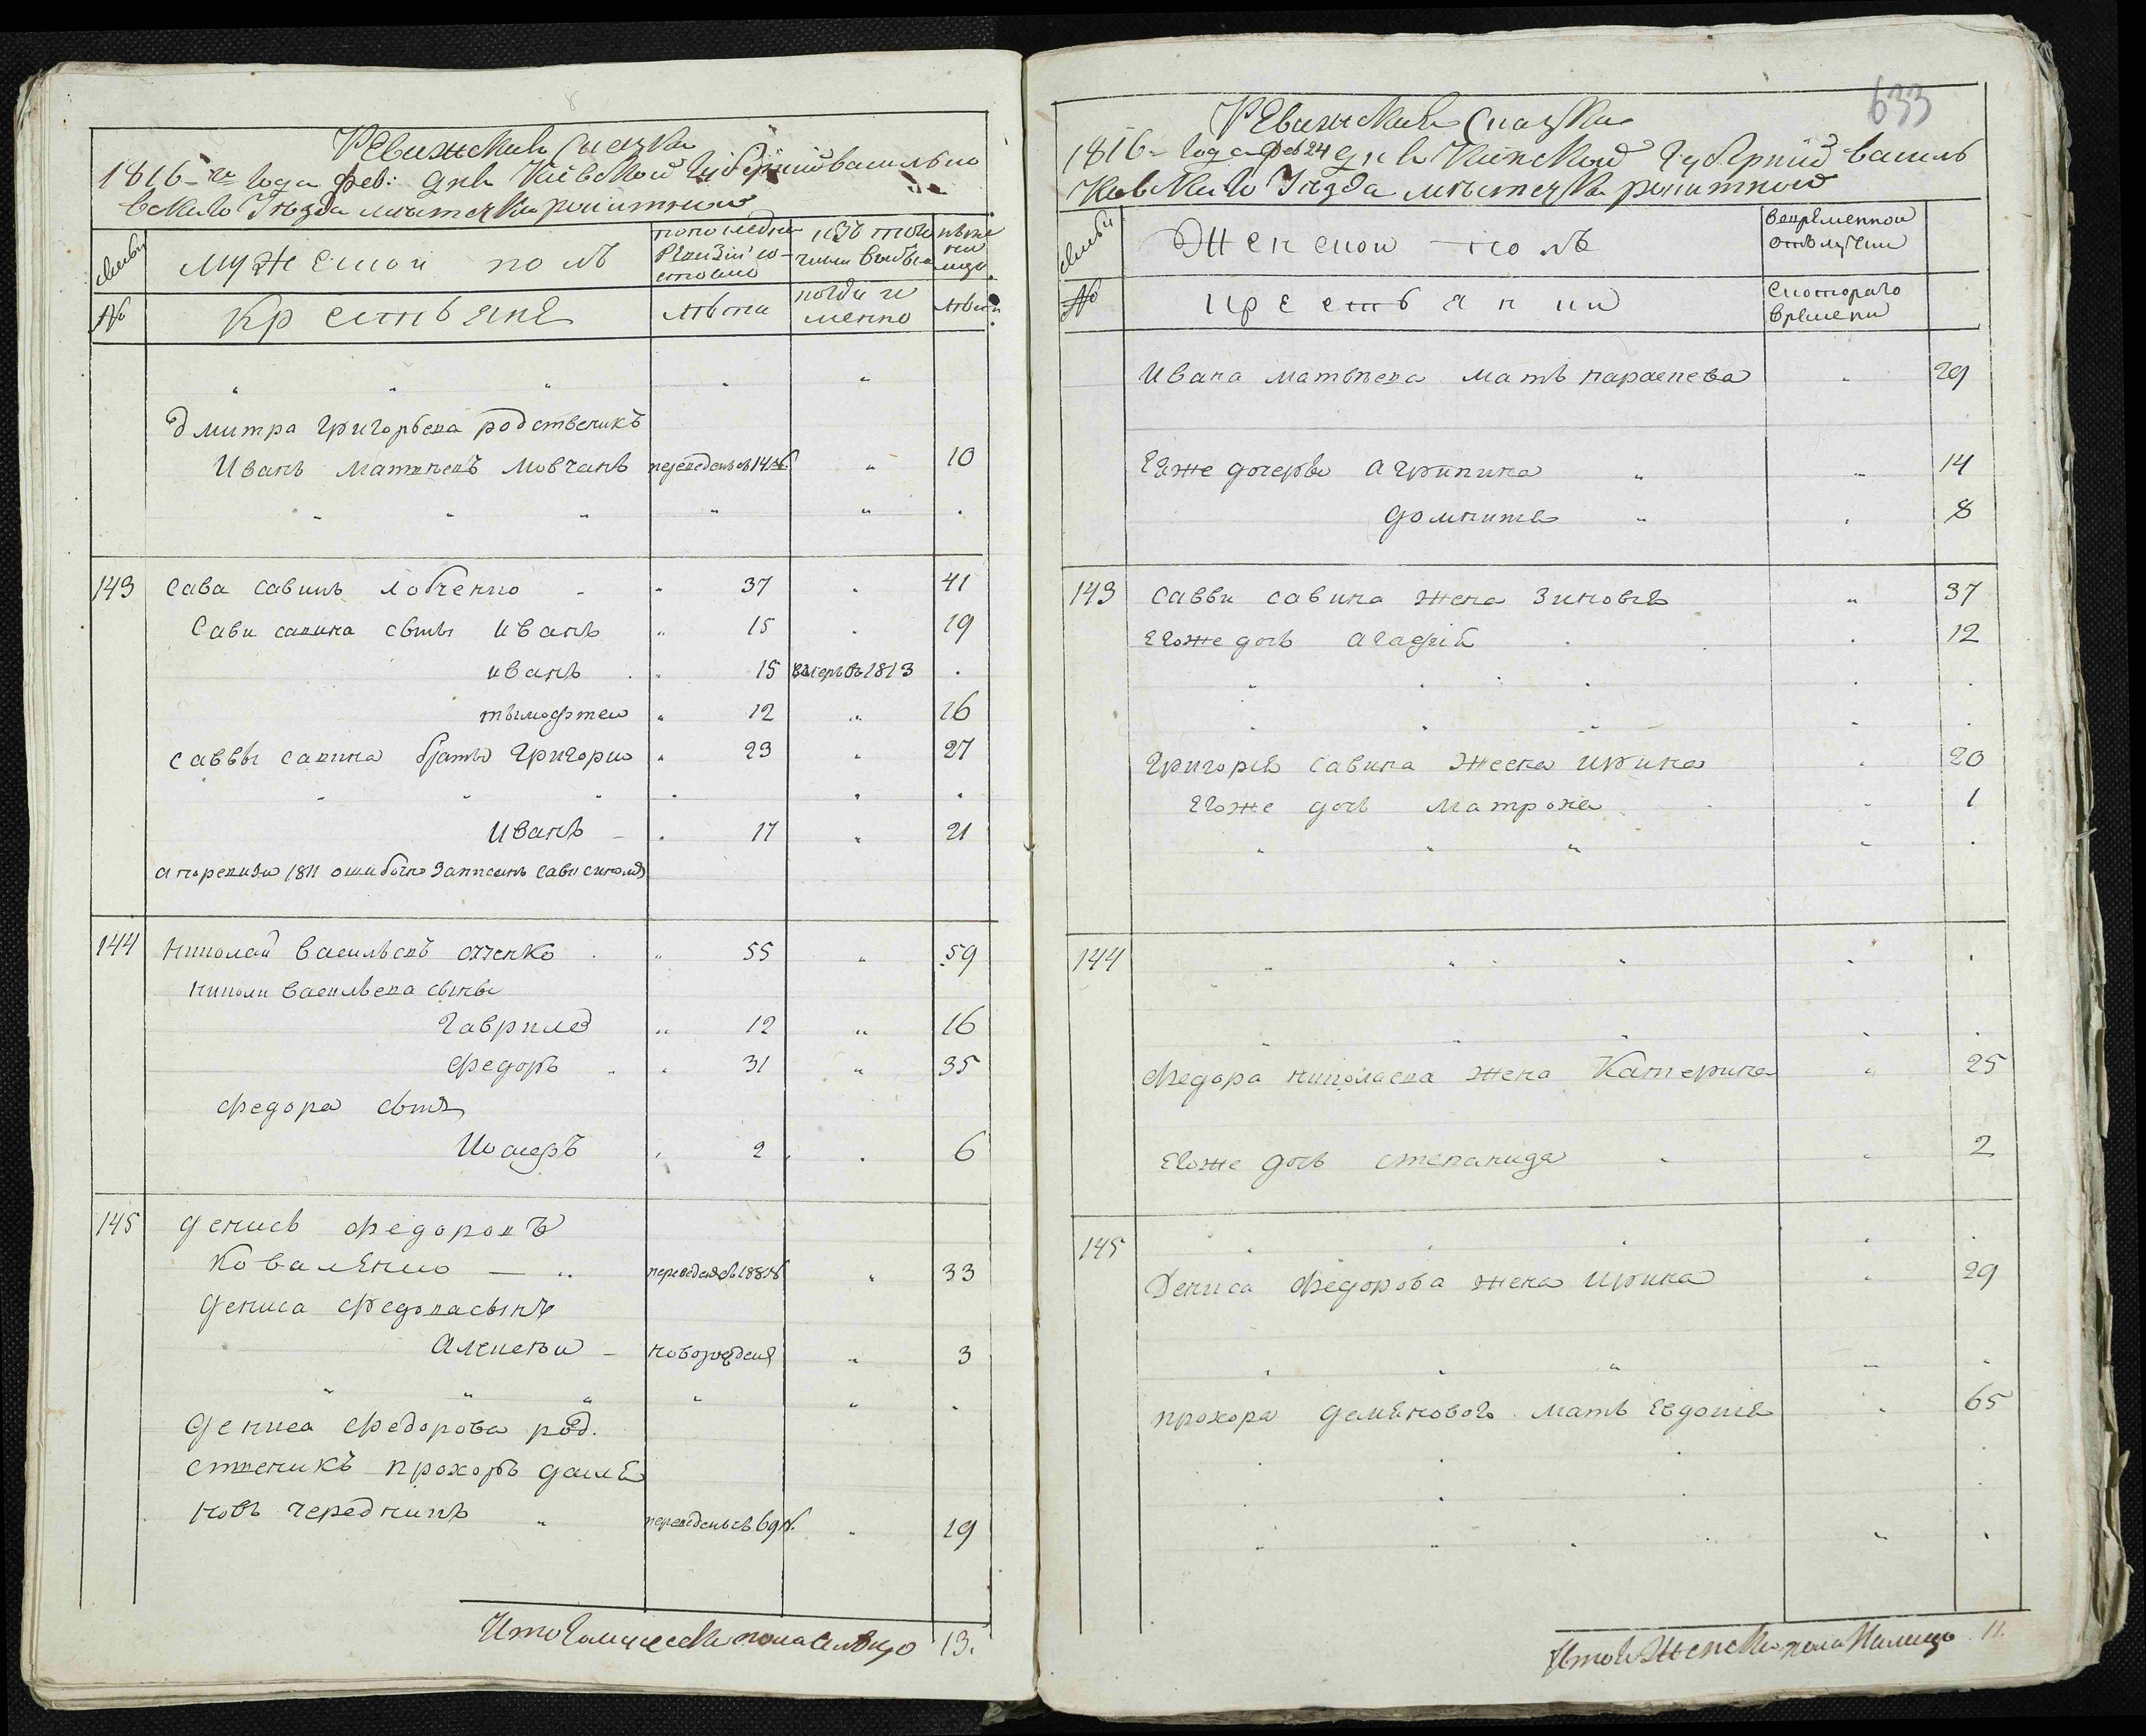 Ревижская Сказка
1816-го года фев: дня Киевской Губернии василько
вского Уезда местечка рокитной
семьи
мужеской полъ
по последней Ревизии состояло
изъ того числа выбыло
ныне на лицо
№
Крестьяне
лета
когда именно
лета
Дмитра григорьева родственикъ
Иванъ Матвеевъ Мовчанъ переведенъ съ 14 № " 10
143 Сава савинъ лобченко " 37 41
Сави савина сынъ иванъ " 15 19
иванъ " 15 умеръ въ 1813
тымофтеи " 12 " 16
саввы савина братъ григорий " 23 " 27
Иванъ 17 " 21
а по ревизии 1811 ошибочно записанъ сави сыномъ
144 Николай васильевъ " 55 " 59
николи васильева сыны
гаврило " 12 " 16
федоръ " 31 " 35
федора сынъ
Иосифъ " 2 6
145 денисъ федоровъ
коваленко — " переведенъ " 33
дениса федорова сынъ
алексеи новорожденъ " 3
дениса федорова род.
ственикъ прохоръ дамя
новъ чередникъ " переведенъ съ 69 №. " 19
Итого мужеска пола налицо 13.
633
Ревижская Сказка
1816 года Фев 24 дня Киевской Губернии василь
ковского Уезда местечка рокитной
семьи
Женской полъ
Во временной отлучки
№
крестьянки
с которого времени
Ивана матвеева мать параскева " 29
его же дочерьи агрипина " " 14
домникия " 8
143 саввы савина жена зиновия " 37
его же дочь агафия 12
григория савина жена ирина 20
его же дочь матрона 1
144
федора николаева жена катерина " 25
его же дочь степанида 2
145
Дениса федорова жена ирина 29
прохора дамянового мать евдокия 65
Итого женска пола налицо 11.